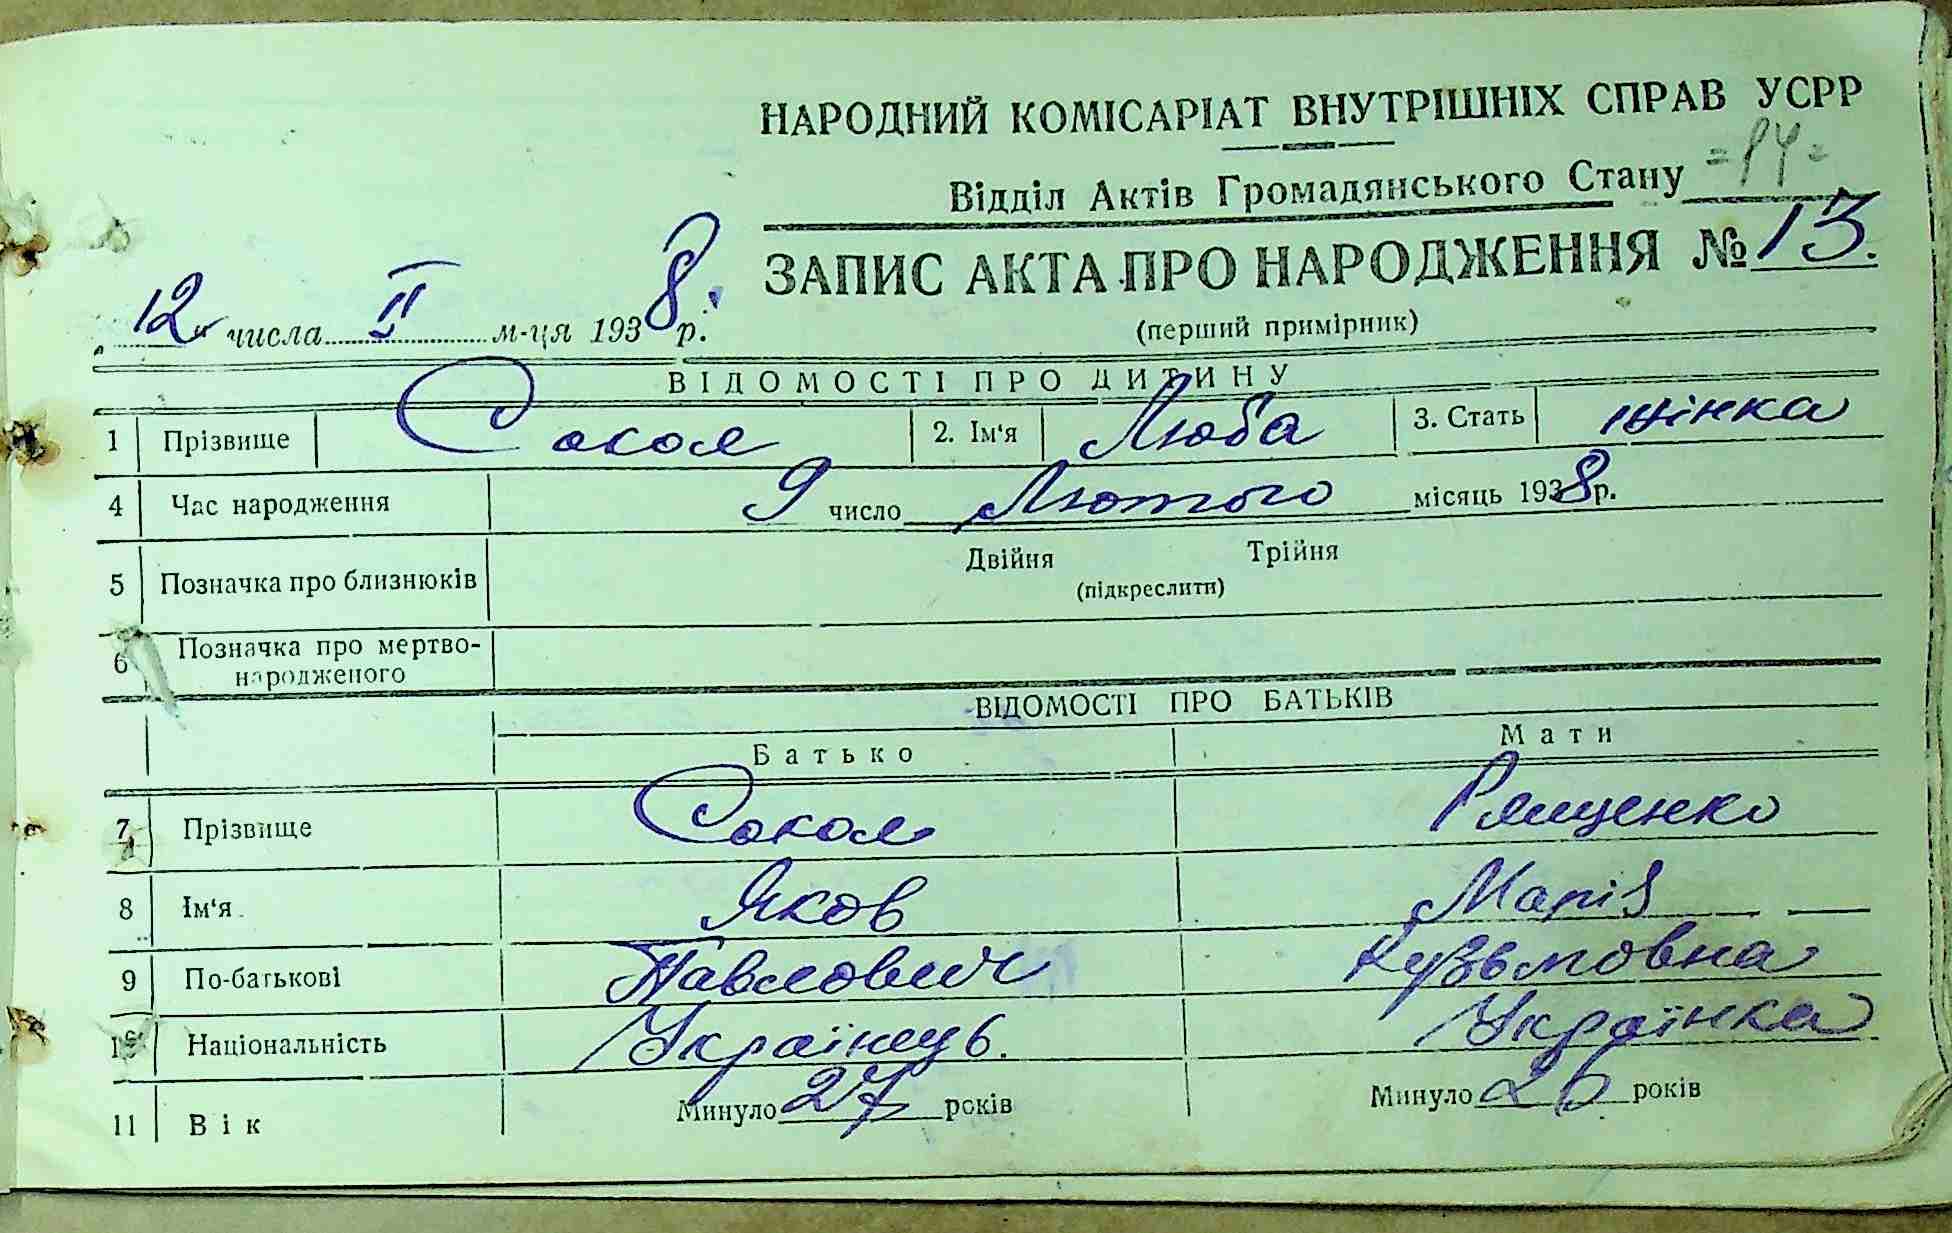 НАРОДНИЙ КОМІСАРІАТ ВНУТРІШНІХ СПРАВ УСРР
Відділ Актів Громадянського Стану
ЗАПИС АКТА ПРО НАРОДЖЕННЯ № 13.
12 числа II м-ця 1938 р.
(перший примірник)
ВІДОМОСТІ ПРО ДИТИНУ
1 Прізвище Сокол 2. Ім'я Люба 3. Стать жінка
4 Час народження 9 число Лютого місяць 1938 р.
5 Позначка про близнюків Двійня Трійня
(підкреслити)
6 Позначка про мертво-
народженого
ВІДОМОСТІ ПРО БАТЬКІВ
Батько Мати
7 Прізвище Сокол Рященко
8 Ім'я Яков Марія
9 По-батькові Павлович Кузьмовна
10 Національність Українець. Українка
11 Вік Минуло 27 років Минуло 26 років